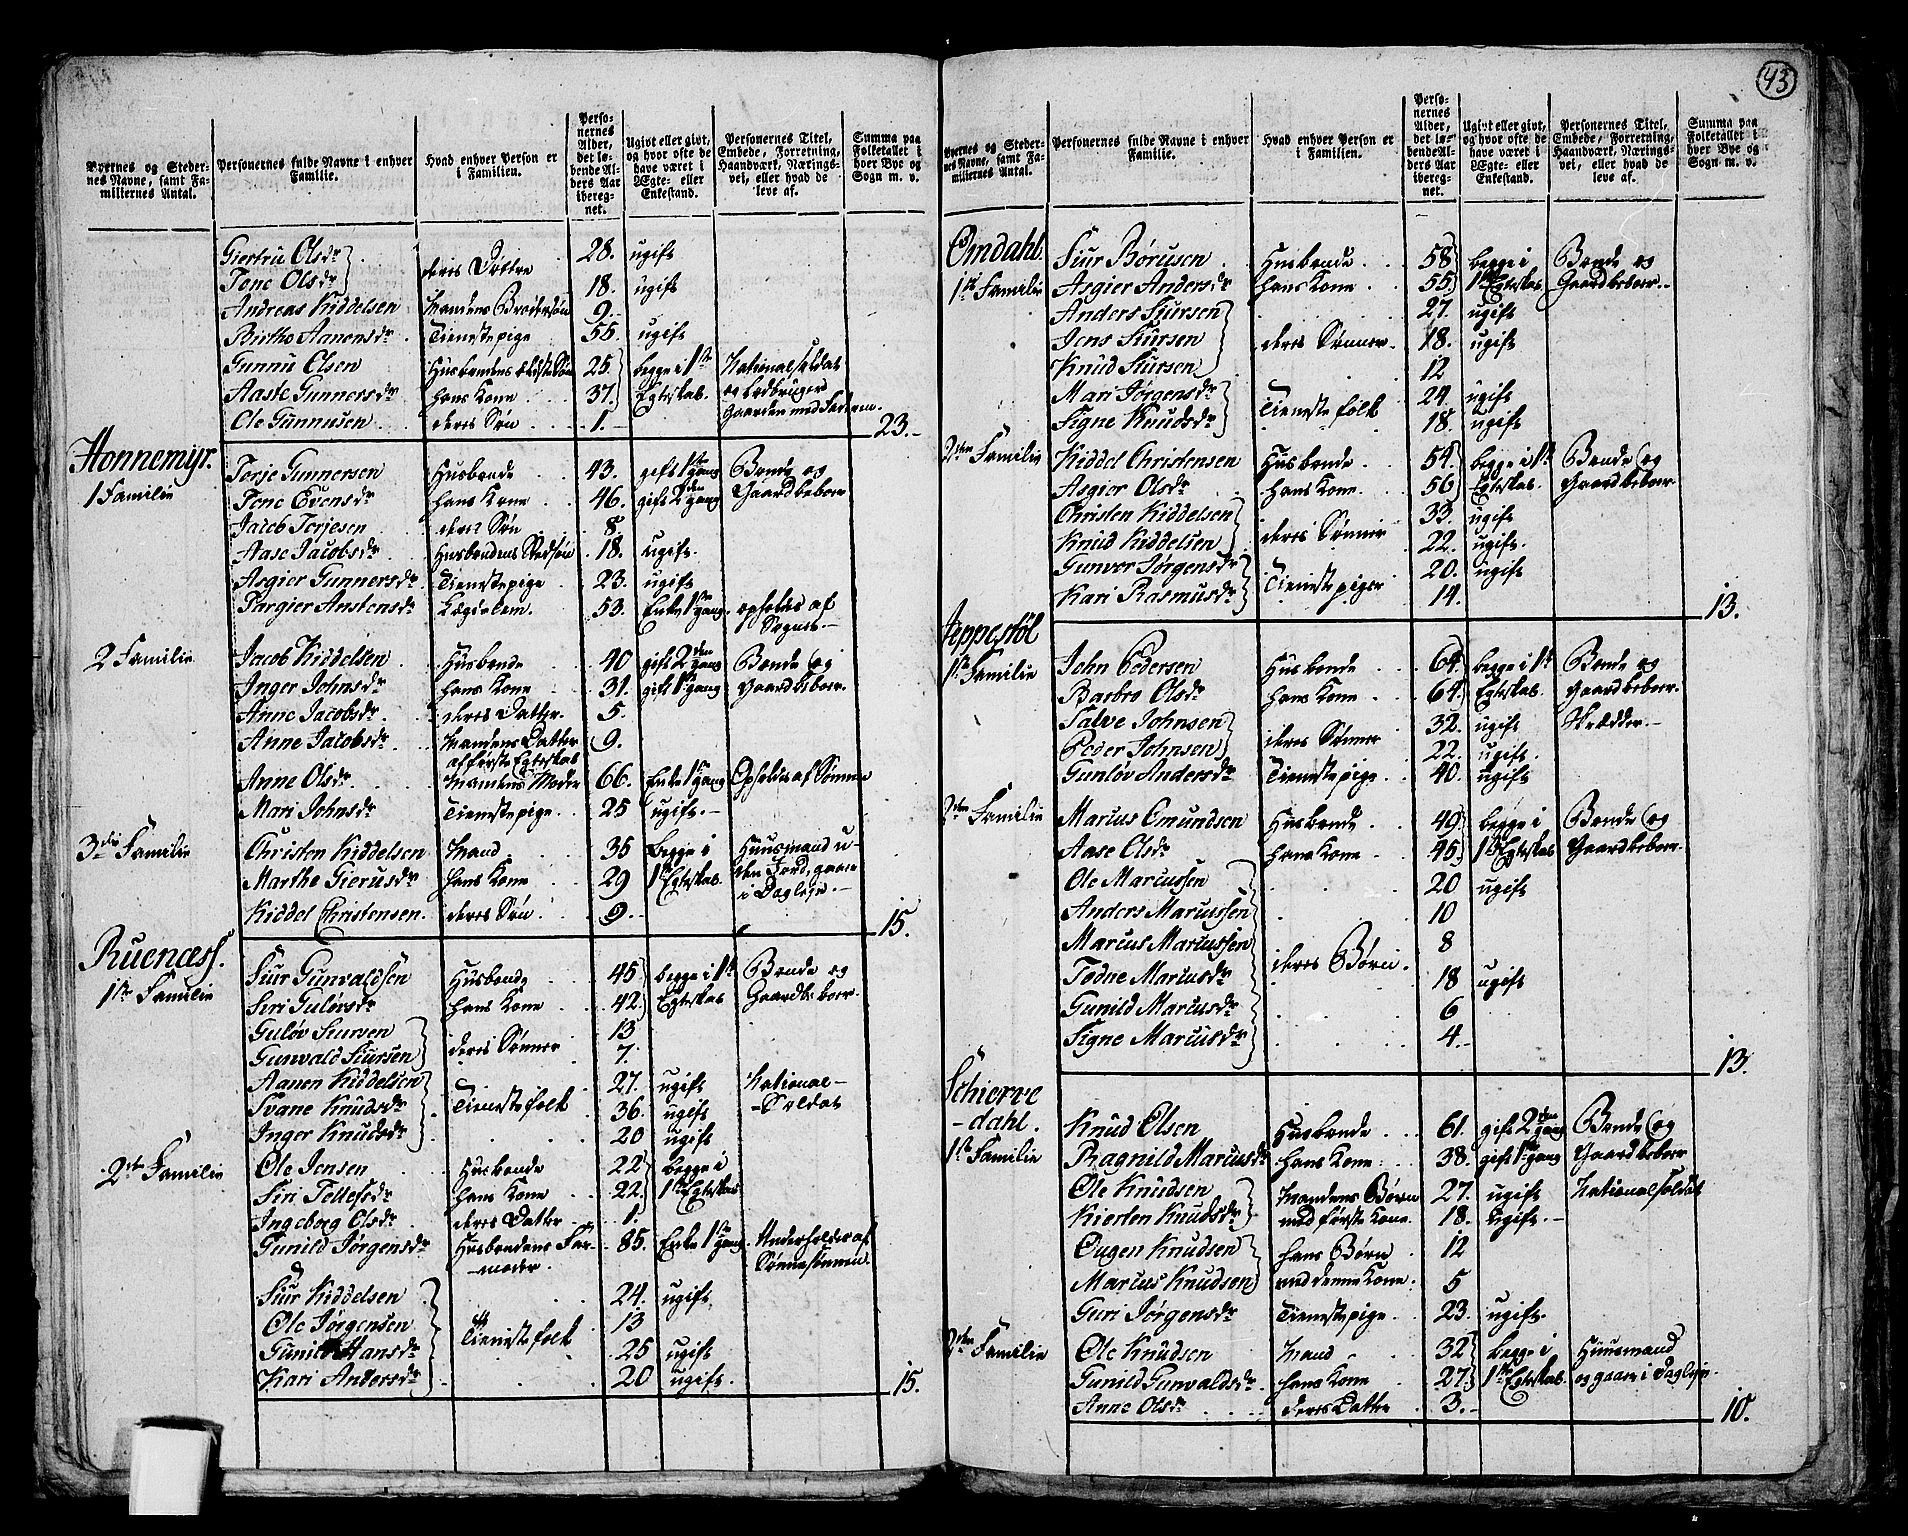 43
Byernes og Steder-
nes Navne, samt Fa-
miliernes Antal.
Personernes fulde Navne i enhver
Familie.
Hvad enhver Person er
i Familien.
Perso-
nernes
Alder,
det lø-
bende Al-
ders Aar
ibereg-
net.
Ugivt eller givt,
og hvor ofte de
have været i
Ægte- eller
Enkestand.
Personernes Titel,
Embede, Forretning,
Haandværk, Nærings-
vei, eller hvad de
leve af.
Summa paa
Folketallet i
hver Bye og
Sogn m. v.
Giertru Olsdr 28. ugift
Tone Olsdr deres Døttre 18. ugift
Andreas Kiddelsen Mandens Brodersøn 9.
Birthe Aanensdr Tienestepige 55. ugift
Gunnu Olsen Husbondens eldste Søn 25. begge i 1ste Nationalsoldat
Aaste Gunnersdr hans Kone 37. Egteskab. og bruger
Ole Gunnusen deres Søn 1. Gaarden med Faderen. 23.
Honnemyr.
1 Familie
Terje Gunnersen Husbonde 43. gift 1ste gang Bonde og
Tone Evensdr hans Kone 46. gift 2den gang Gaardbeboer
Jacob Terjesen deres Søn 8
Aase Jacobsdr Husbondens 18. ugift.
Asgier Gunnersdr Tienestepige 23. ugift
Targier Anstensdr Lægdslem. 53. Enke 1ste gang. opholdes af
Sognet.
2 Familie
Jacob Kiddelsen Husbonde 40 gift 2den gang Bonde og
Inger Johnsdr hans Kone 31. gift 1ste gang Gaardbeboer.
Anne Jacobsdr deres Datter. 5.
Anne Jacobsdr Mandens Datter 9.
af første Egteskab
Anne Olsdr Mandens Moder 66. Enke 1ste gang Opholdes af Sønnen
Mari Johnsdr Tienestepige 25 ugift.
3die Familie
Christen Kiddelsen Mand 35 begge i Huusmand u-
Marthe Gierusdr hans Kone 29 1ste Egteskab. den Jord, gaaer
i Dagleje.
Kiddel Christensen. deres Søn 9. 15.
Ruenæss.
1ste Familie
Siur Gunvaldsen Husbonde 45 begge i 1ste Bonde og
Siri Guløvsdr hans Kone 42. Egteskab Gaardbeboer.
Guløv Siursen 13
Gunvald Siursen deres Sønner 7.
Aanen Kiddelsen 27. ugift National-
Svane Knudsdr Tienestefolk 36. ugift -Soldat
Inger Knudsdr 20 ugift
2den Familie
Ole Jensen Husbonde 22 begge i
Siri Tellefsdr hans Kone 22. 1ste Egteskab
Ingeborg Olsdr deres Datter 1.
Gunild Jørgensdr Husbondens Far- 85. Enke 1ste gang Underholdes af
moder. Sønnesønnen.
Siur Kiddelsen 24. ugift
Ole Jørgensen 13
Tienestefolk
Gunild Hansdr 25 ugift
Kari Andersdr 20 ugift. 15.
Byernes og Steder-
nes Navne, samt Fa-
miliernes Antal.
Personernes fulde Navne i enhver
Familie.
Hvad enhver Person er
i Familien.
Perso-
nernes
Alder,
det lø-
bende Al-
ders Aar
ibereg-
net.
Ugivt eller givt,
og hvor ofte de
have været i
Ægte- eller
Enkestand.
Personernes Titel,
Embede, Forretning,
Haandværk, Nærings-
vei, eller hvad de
leve af.
Summa paa
Folketallet i
hver Bye og
Sogn m. v.
Omdahl.
1ste Familie
Siur Børusen Husbonde 58 begge i Bonde og
Asgier Andersdr hans Kone 55. 1ste Egteskab Gaardbeboer.
Anders Siursen 27. ugift
Jens Siursen deres Sønner 18. ugift
Knud Siursen 12
Mari Jørgensdr 24. ugift
Tienestefolk
Signe Knudsdr 18. ugift
2den Familie
Kiddel Christensen Husbonde 54. begge i 1ste Bonde og
Asgier Olsdr hans Kone 56 Egteskab. Gaardbeboer
Christen Kiddelsen 33. ugift
deres Sønner
Knud Kiddelsen 22. ugift.
Gunvor Jørgensdr 20. ugift
Tienestepiger
Kari Rasmusdr 14. 13.
Jeppestøl
1ste Familie
John Pedersen Husbonde 64. begge i 1ste Bonde og
Barbro Olsdr hans Kone 64. Egteskab. Gaardbeboer
Salve Johnsen 32. ugift Skrædder.
deres Sønner
Peder Johnsen 22. ugift.
Gunløv Andersdr Tienestepige 40. ugift
2den Familie
Marcus Omundsen Husbonde 49 begge i Bonde og
Aase Olsdr hans Kone 45. 1ste Egteskab Gaardbeboer.
Ole Marcussen 20 ugift
Anders Marcussen 10
Marcus Marcussen 8
deres Børn.
Todne Marcusdr 18 ugift
Gunild Marcusdr 6
Signe Marcusdr 4. 13.
Schierve
-dahl.
1ste Familie
Knud Olsen Husbonde 61. gift 2den gang Bonde og
Ragnild Marcusdr hans Kone 38. gift 1ste gang Gaardbeboer
Ole Knudsen Mandens Børn 27. ugift Nationalsoldat
Kiersten Knudsdr med første Kone 18. ugift.
Ougen Knudsen hans Børn 12
Marcus Knudsen med denne Kone. 5
Guri Jørgensdr Tienestepige 23. ugift.
2den Familie
Ole Knudsen Mand 32 begge i Huusmand
Gunild Gunvaldsdr hans Kone 27. 1ste Egteskab. og gaaer i Dagleje.
Anne Olsdr deres Datter 3. 10.